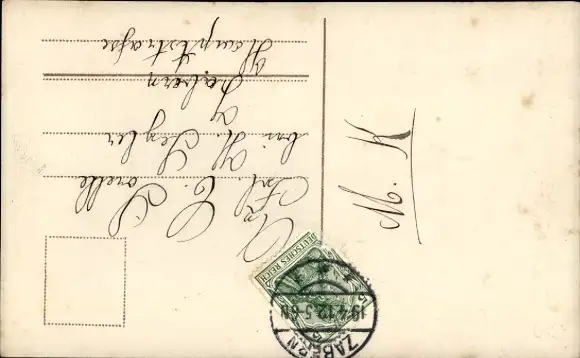 An
Frl. C. Sorelle
bei H. Segler
Zabern
Hauptstrasse
M. K
DEUTSCHES REICH
ZABERN
19.4.12.5-6N